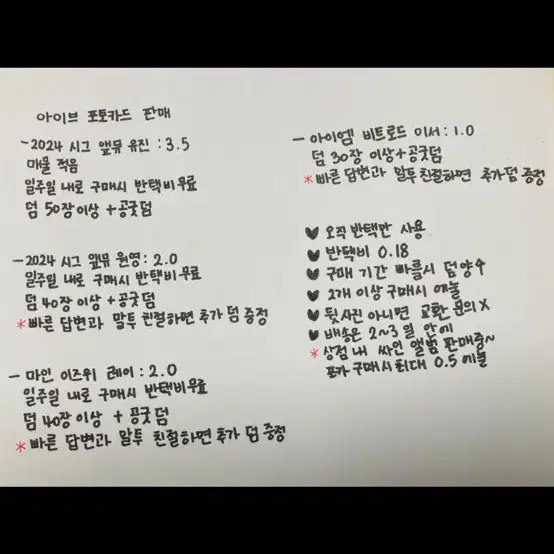 아이브 포토카드 판매
- 2024 시그 앺뮤 유진 : 3.5
매물 적음
일주일 내로 구매시 반택비 무료
덤 50장 이상 + 공굿 덤
- 2024 시그 앺뮤 원영 : 2.0
일주일 내로 구매시 반택비 무료
덤 40장 이상 + 공굿 덤
* 빠른 답변과 말투 친절하면 추가 덤 증정
- 마인 이즈위 레이 : 2.0
일주일 내로 구매시 반택비 무료
덤 40장 이상 + 공굿 덤
* 빠른 답변과 말투 친절하면 추가 덤 증정
- 아이엠 비트로드 이서 : 1.0
덤 30장 이상 + 공굿 덤
* 빠른 답변과 말투 친절하면 추가 덤 증정
♥ 오직 반택만 사용
♥ 반택비 0.18
♥ 구매 기간 빠를시 덤 양↑
♥ 2개 이상 구매시 에눌
♥ 뒷사진 아니면 교환 문의 X
♥ 배송은 2~3일 안에
* 상점 내 싸인 앨범 판매중~
포카 구매시 최대 0.5 에눌